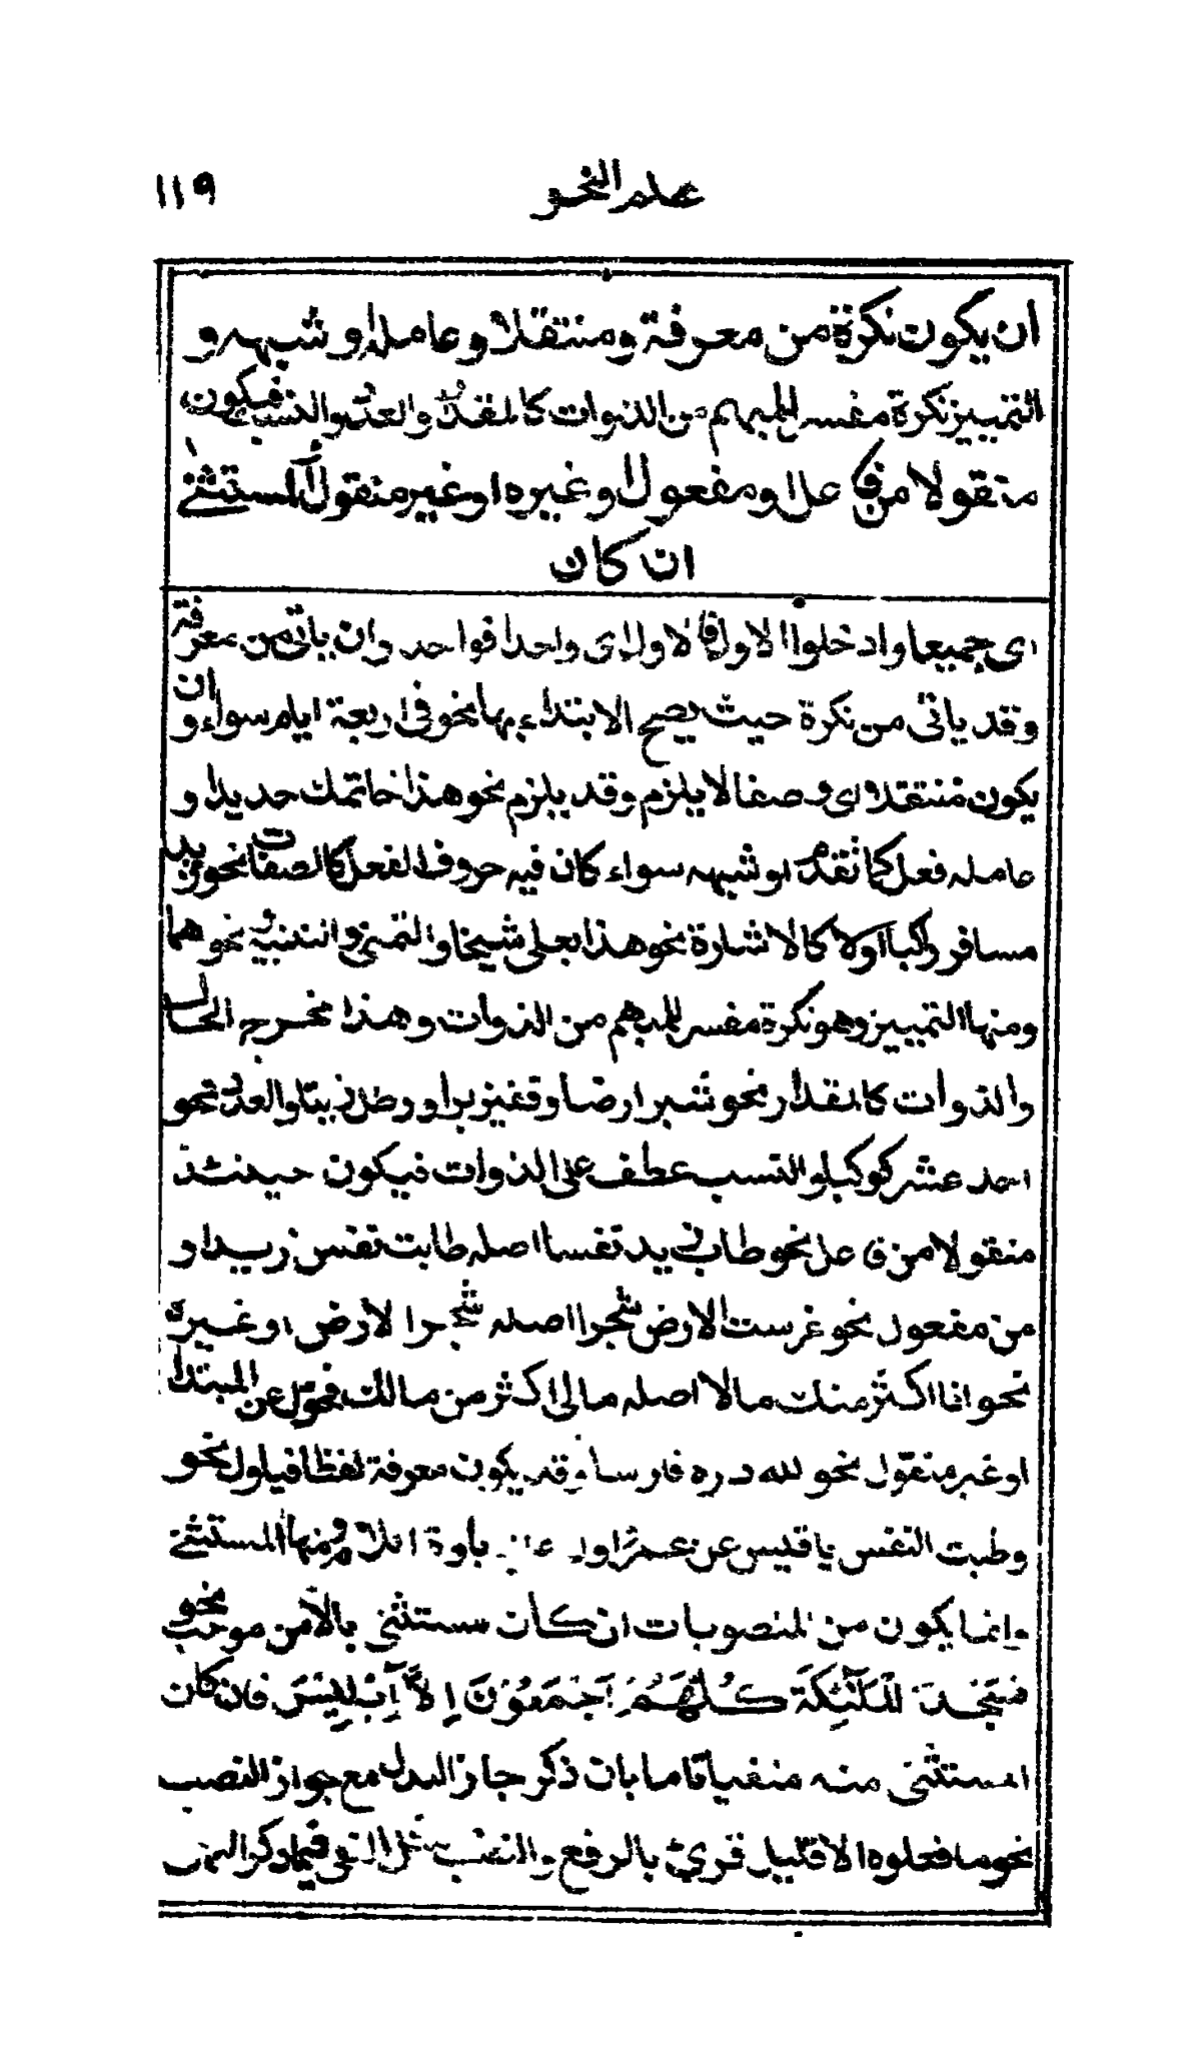 علم النحو ١١٩
ان يكون نكرة من معرفة ومنتقلا وعامله او شبهه و
التمييز نكرة مفسر للمبهم من الذوات كالمقدار والعدد والنسب فيكون
منقولا من فاعل او مفعول او غيره او غير منقول المستثنى
ان كان
اى جميعا وادخلوا الاول فالاول اى واحدا فواحد وان ياتى من معرفة
وقد ياتى من نكرة حيث يصح الابتداء بها نحو فى اربعة ايام سواء وان
يكون منتقلا اى وصفا لا يلزم وقد يلزم نحو هذا خاتمك حديدا و
عامله فعل كما تقدم او شبهه سواء كان فيه حروف الفعل كالصفات نحو زيد
مسافر راكبا اولا كالاشارة نحو هذا بعلى شيخا والتمنى والتنبيه نحوهما
ومنها التمييز وهو نكرة مفسر للمبهم من الذوات وهذا مخرج الحال
والذوات كالمقدار نحو شبر ارضا وقفيز برا ورطل زيتا والعدد نحو
احد عشر كوكبا والنسب عطف على الذوات فيكون حينئذ
منقولا من فاعل نحو طاب زيد نفسا اصله طابت نفس زيد او
من مفعول نحو غرست الارض شجرا اصله شجر الارض او غيره
نحو انا اكثر منك مالا اصله مالى اكثر من مالك فحول عن المبتدا
او غير منقول نحو لله دره فارسا وقد يكون معرفة لفظا فياول نحو
وطبت النفس يا قيس عن عمرو اول باوة ومنها المستثنى
وانما يكون من المنصوبات ان كان مستثنى بالا من موجب نحو
فسجد الملئكة كلهم اجمعون الا ابليس فان كان
المستثنى منه منفيا تاما بان ذكر جاز البدل مع جواز النصب
نحو ما فعلوه الا قليل قرئ بالرفع والنصب